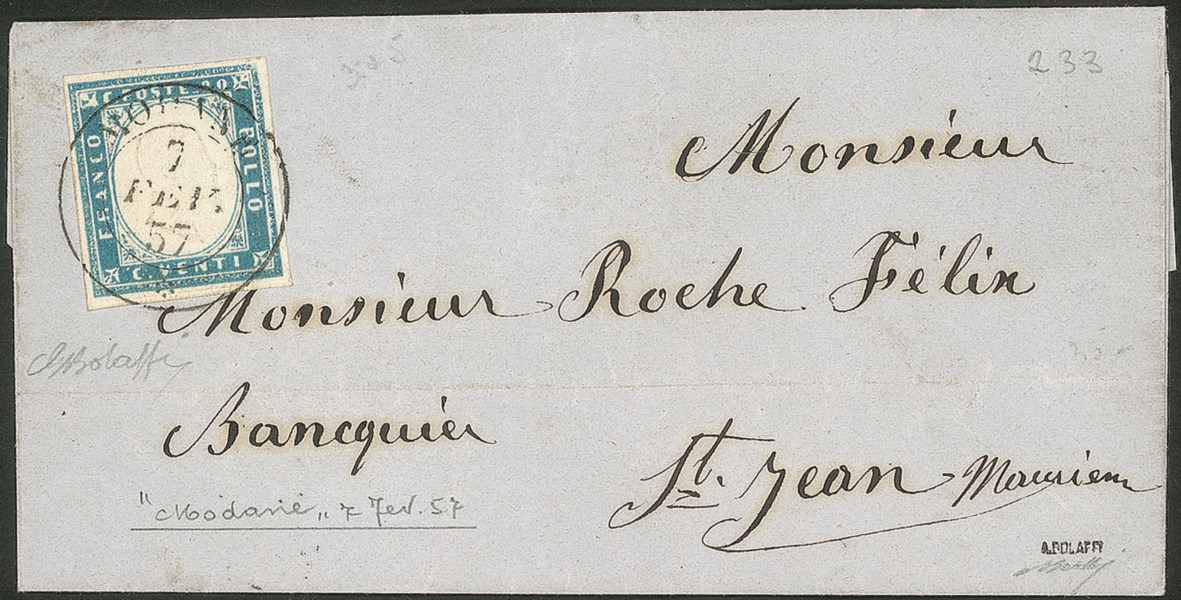 233
C. POSTE 20
FRANCO
BOLLO
C. VENTI
7
FEV.
57
Monsieur
Monsieur Roche Félix
GBolaffi
Bancquier
St. Jean Maurienne
"Modane" 7 Fev. 57
A. BOLAFFI